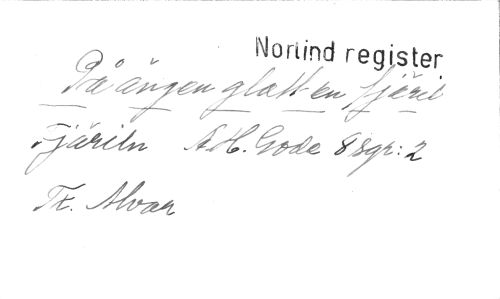 Norlind register
På ängen glatt en fjäril
Fjäriln A.H. Gode 8 sgr: 2
Tx. Alvar